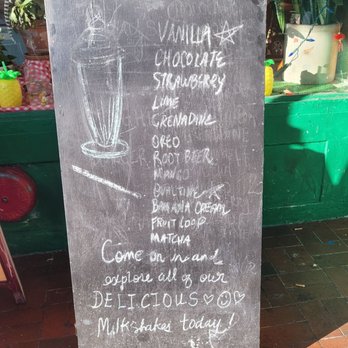 VANILLA
CHOCOLATE
STRAWBERRY
LIME
GRENADINE
OREO
ROOT BEER
MANGO
OVALTINE
BANANA CREAM
FRUIT LOOP
MATCHA
Come on in and
explore all of our
DELICIOUS
Milkshakes today!